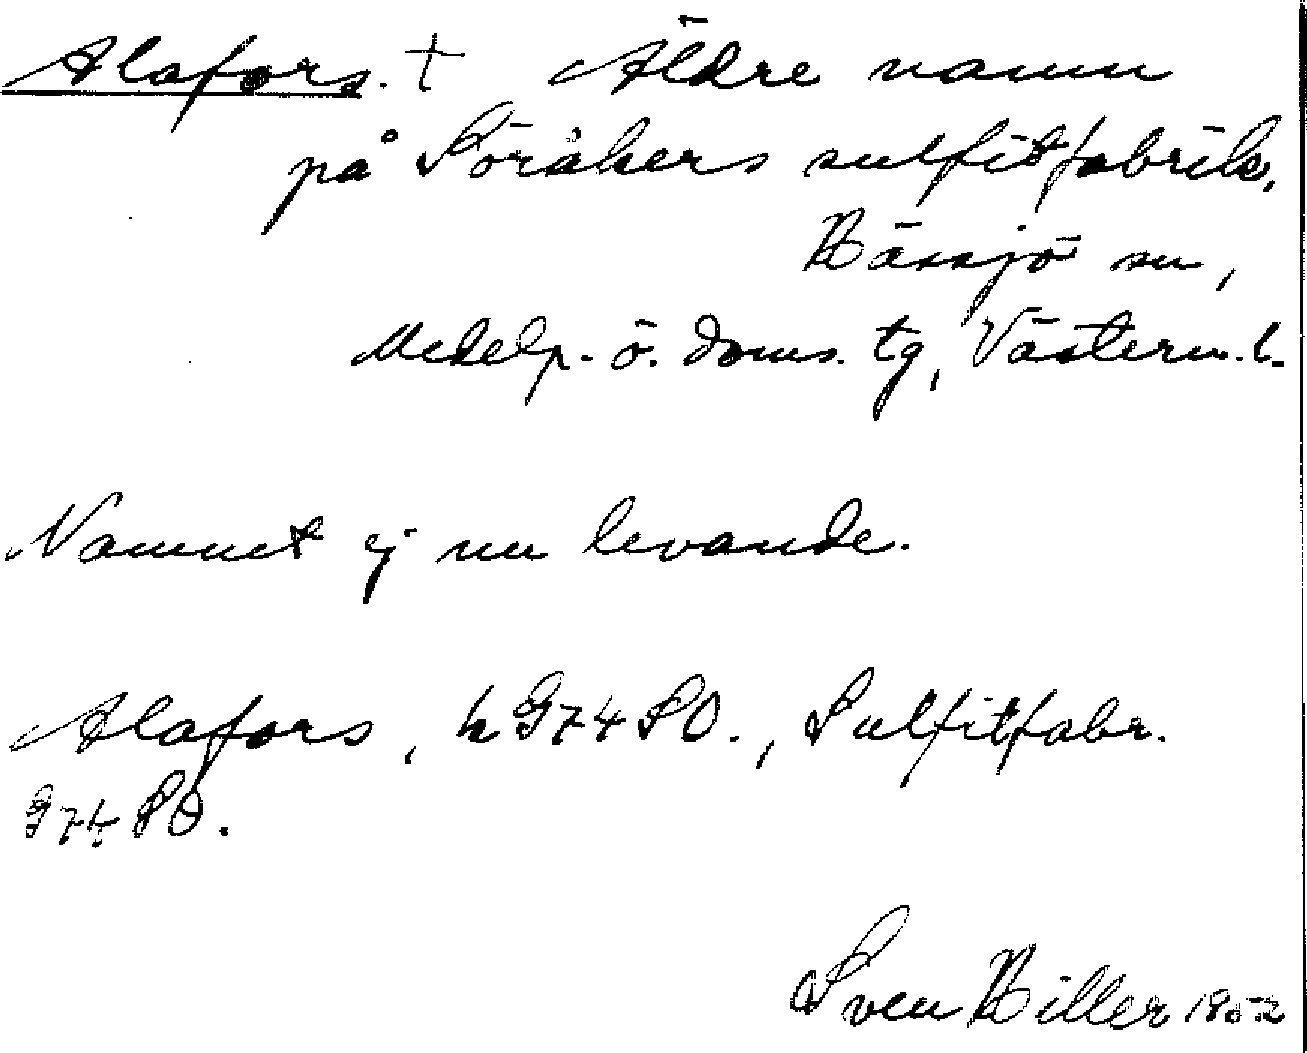 Alafors. † Äldre namn
på Söråkers sulfitfabrik,
Hässjö sn,
Medelp. ö. doms. tg, Västern. l.
Namnet ej nu levande.
Alafors, h G74 SO., Sulfitfabr.
G74 SO.
Sven Hiller 1952